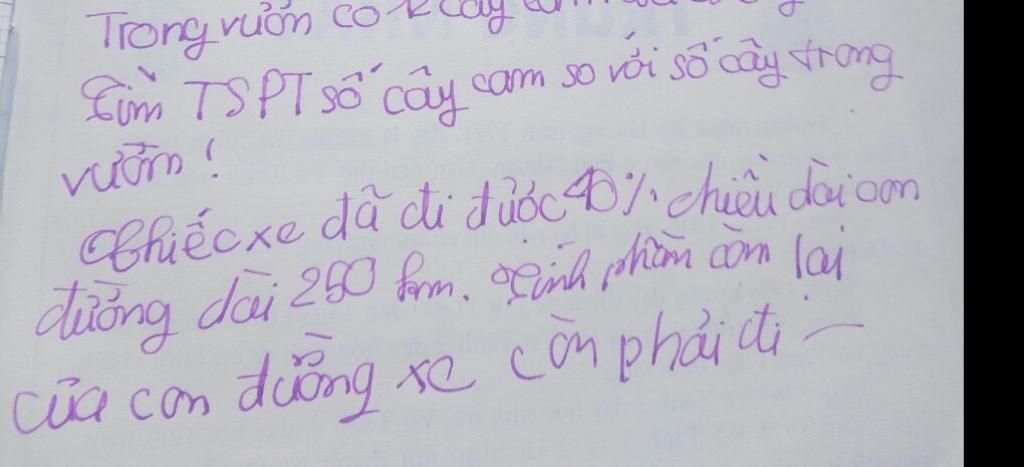 Trong vườn có 12 cây cam và
Tìm TSPT số cây cam so với số cây trong
vườn!
Chiếc xe đã đi được 40% chiều dài con
đường dài 250 km. Tính phần còn lại
của con đường xe còn phải đi –